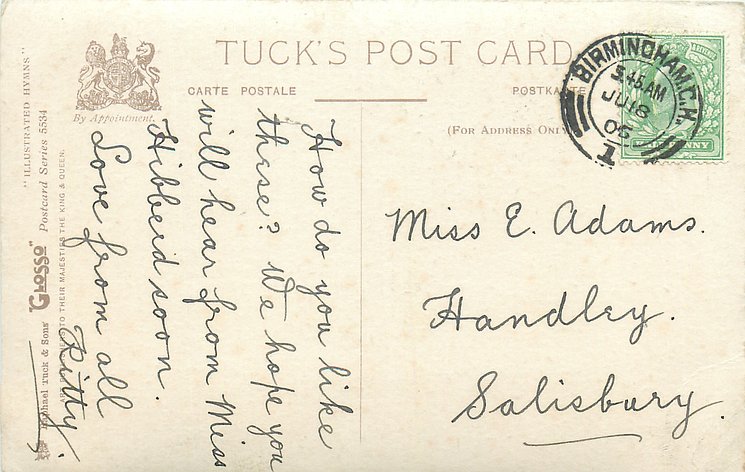 TUCK'S POST CARD
CARTE POSTALE
POSTKARTE
(FOR ADDRESS ONLY)
By Appointment.
"ILLUSTRATED HYMNS"
"GLOSSO" Postcard Series 5534
Raphael Tuck & Sons'
TO THEIR MAJESTIES THE KING & QUEEN.
BIRMINGHAM.C.H.
5.45 AM
JU 18
05
1
How do you like
these? We hope you
will hear from Miss
Hibberd soon.
Love from all
Kitty.
Miss E. Adams.
Handley.
Salisbury.